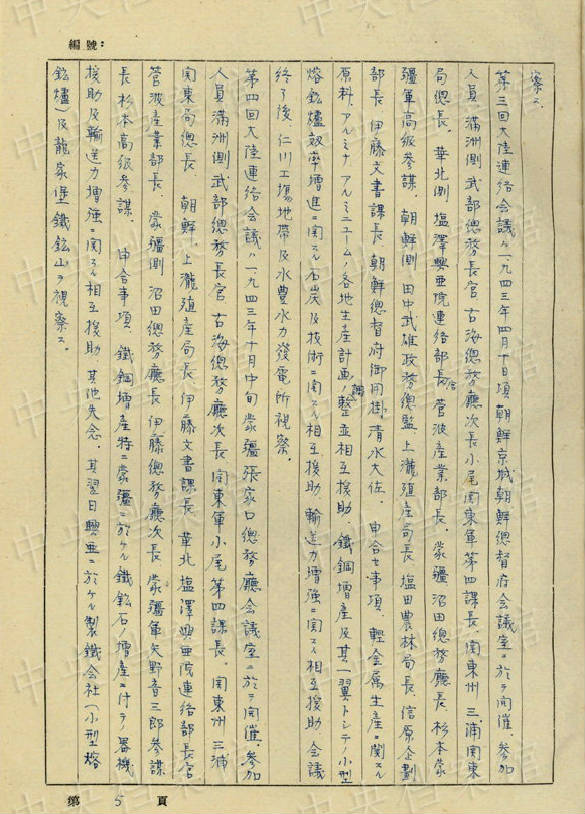 編號：
察ス.
第三回大陸連絡会議ハ一九四三年四月十日頃朝鮮京城朝鮮總督府会議室ニ於テ開催。参加
人員 満洲側 武部總務長官、古海總務廳次長 小尾関東軍第四課長、関東州 三浦関東
局總長。華北側 塩澤興亜院連絡部長官 菅波産業部長。蒙疆 沼田總務廳長 杉本蒙
疆軍高級参謀。朝鮮側 田中武雄政務總監 上瀧殖産局長 塩田農林局長 信原企劃
部長 伊藤文書課長 朝鮮總督府御用掛 清水大佐。申合セ事項。軽金属生産ニ関スル
原料、アルミナ アルミニューム、各地生産計画ノ調整並相互援助 鐵鋼増産及其一翼トシテノ小型
熔鉱爐效率増進ニ関スル石炭及技術ニ関スル相互援助 輸送力増強ニ関スル相互援助 会議
終了後 仁川工場地帯及水豊水力発電所視察。
第四回大陸連絡会議ハ一九四三年十月中旬 蒙疆張家口總務廳会議室ニ於テ開催。参加
人員 満洲側 武部總務長官 古海總務廳次長 関東軍小尾第四課長。関東州 三浦
関東局總長。朝鮮。上瀧殖産局長 伊藤文書課長 華北 塩澤興亜院連絡部長官
菅波産業部長。蒙疆側 沼田總務廳長 伊藤總務廳次長 蒙疆軍矢野音三郎参謀
長 杉本高級参謀。申合事項、鐵鋼増産特ニ蒙疆ニ於ケル鐵鉱石ノ増産ニ付テノ器機
援助及輸送力増強ニ関スル相互援助 其他失念。其翌日興亜ニ於ケル製鐵会社（小型熔
鉱爐）及龍家堡鐵鉱山ヲ視察ス。
第 5 頁